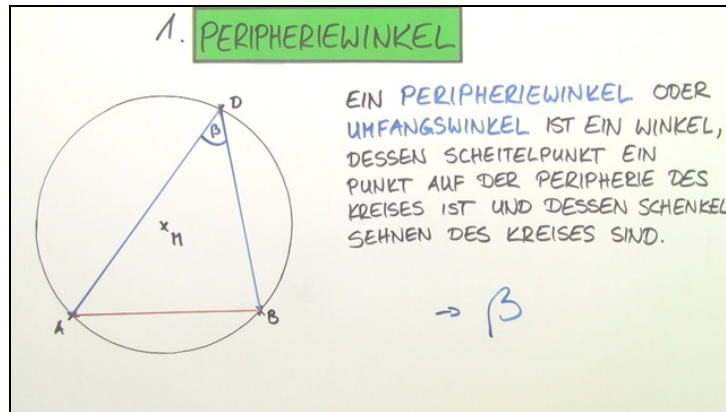 1. PERIPHERIEWINKEL
EIN PERIPHERIEWINKEL ODER
UMFANGSWINKEL IST EIN WINKEL,
DESSEN SCHEITELPUNKT EIN
PUNKT AUF DER PERIPHERIE DES
KREISES IST UND DESSEN SCHENKEL
SEHNEN DES KREISES SIND.
→ β
D
β
M
A
B